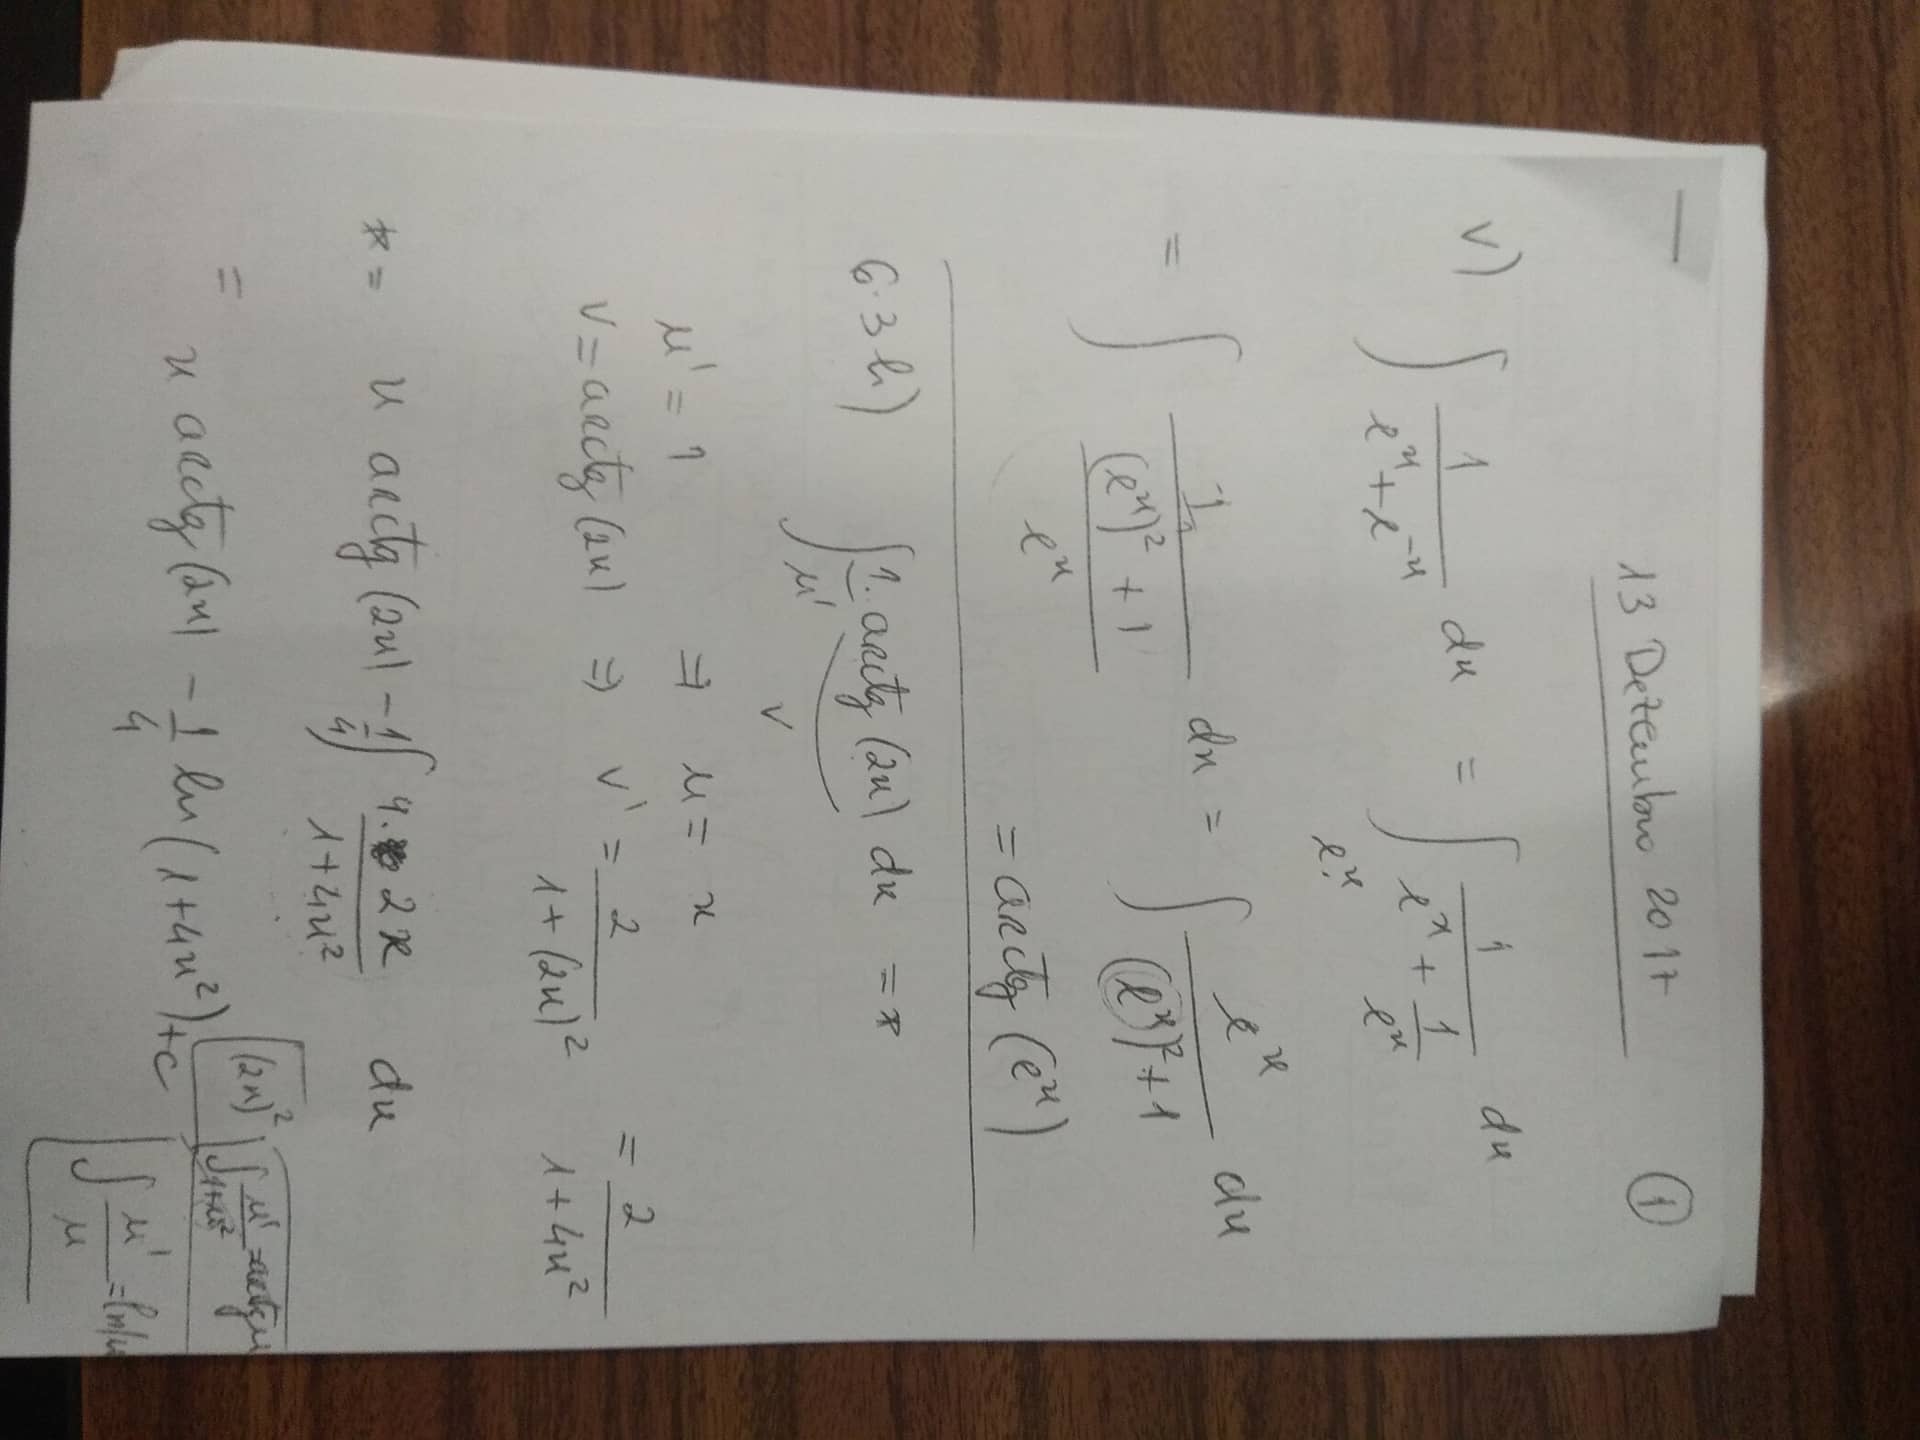 13 Dezembro 2017 ①
v) ∫ 1/(e^x + e^-x) dx = ∫ 1/(e^x + 1/e^x) dx
e^x.
= ∫ 1/(((e^x)^2 + 1)/e^x) dx = ∫ e^x/((e^x)^2 + 1) dx
= arctg (e^x)
6.3 h) ∫ 1. arctg (2x) dx = *
u' v
u' = 1 ⇒ u = x
v = arctg (2x) ⇒ v' = 2/(1 + (2x)^2) = 2/(1 + 4x^2)
* = x arctg (2x) - 1/4 ∫ 4. 2x/(1 + 4x^2) dx
= x arctg (2x) - 1/4 ln (1 + 4x^2) + c
(2x)^2
∫ u'/(1+u^2) = arctg u
∫ u'/u = ln|u